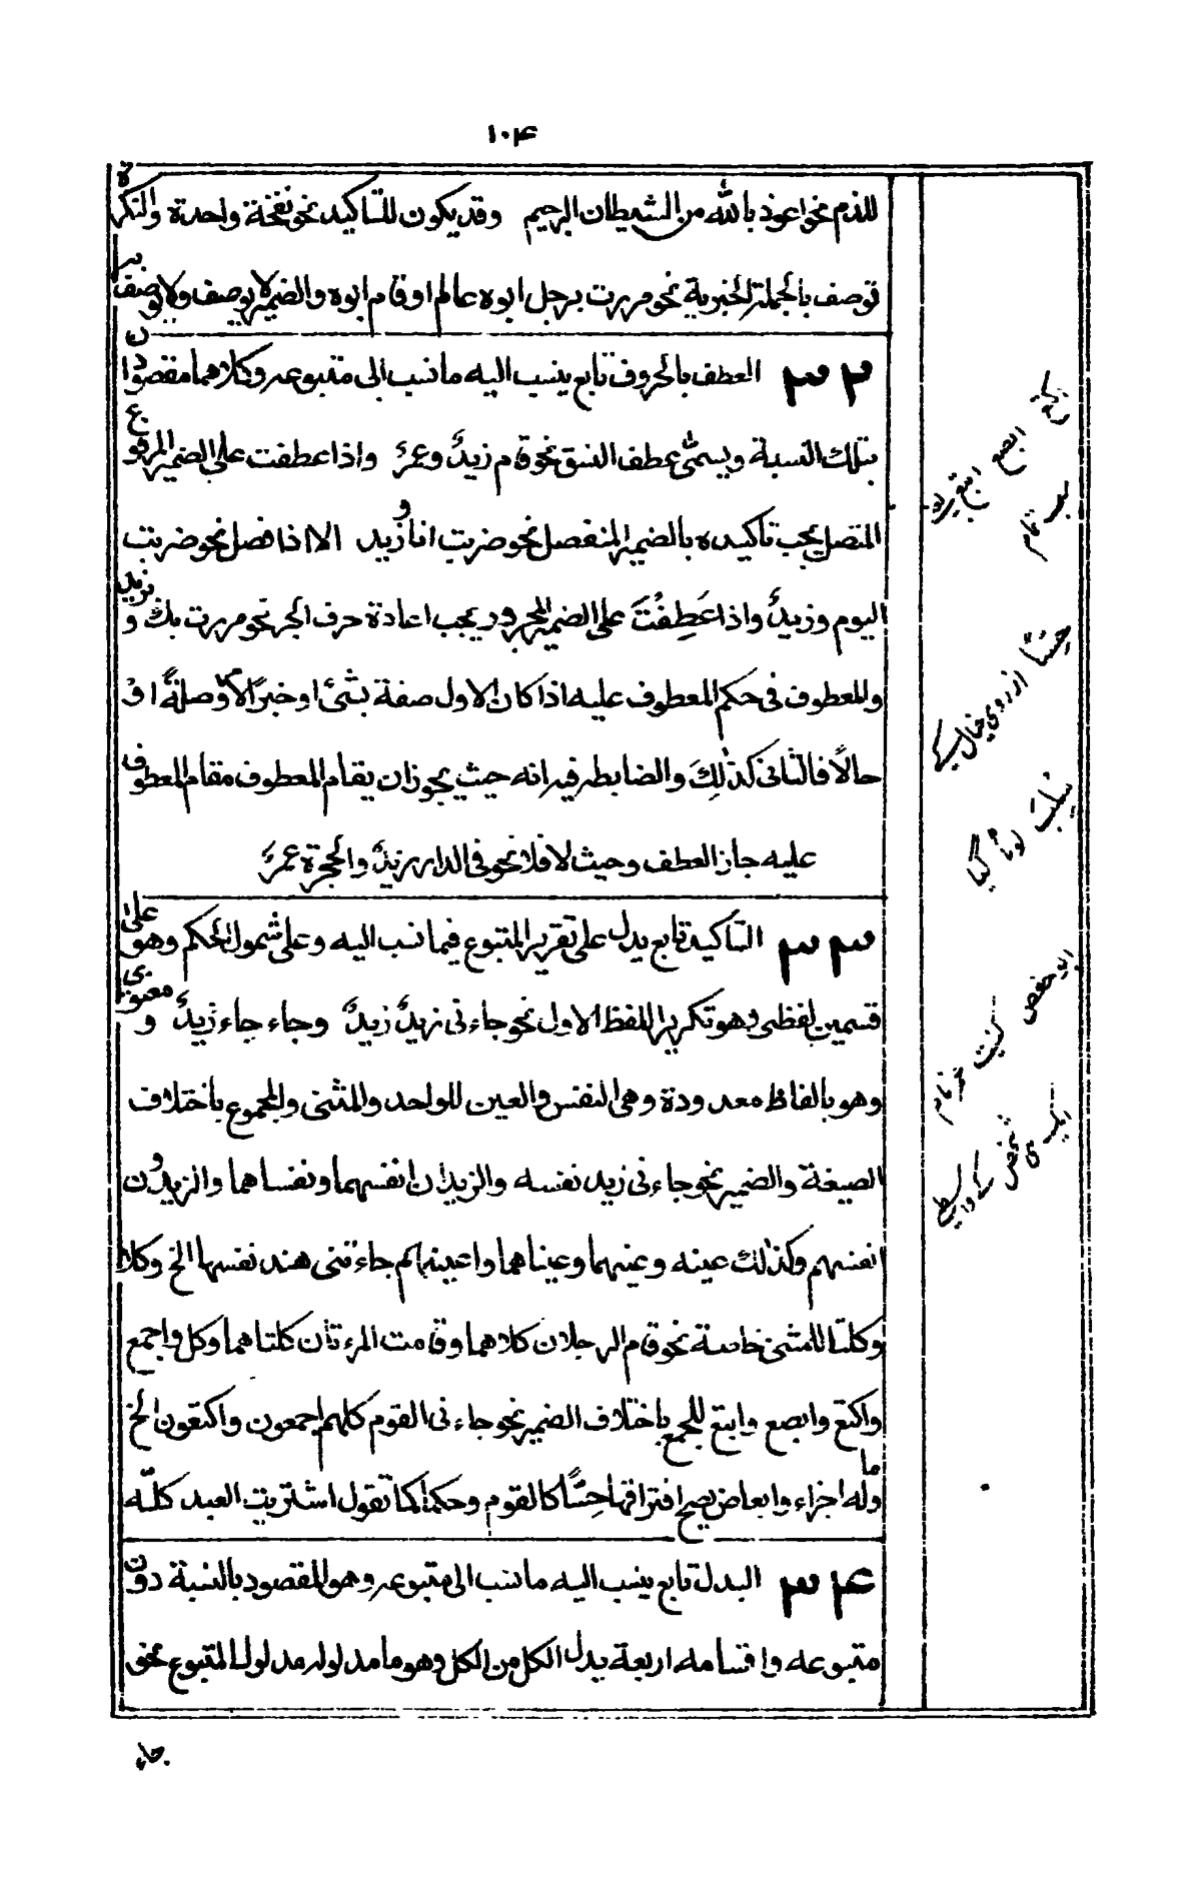 ۱۰۴
للذم نحو اعوذ بالله من الشيطان الرجيم وقد يكون للتاكيد نحو نفخة واحدة والنكرة
توصف بالجملة الخبرية نحو مررت برجل ابوه عالم او قام ابوه والضمير لا يوصف ولا يوصف به
۳۲ العطف بالحروف تابع ينسب اليه ما نسب الى متبوعه وكلاهما مقصودان
بتلك النسبة ويسمّى عطف النسق نحو قام زيدٌ وعمرٌ واذا عطفت على الضمير المرفوع
المتصل يجب تاكيده بالضمير المنفصل نحو ضربت انا وزيد الا اذا فصل نحو ضربت
اليوم وزيدٌ واذا عَطِفْتَ على الضمير المجرور يجب اعادة حرف الجر نحو مررت بك و بزيد
والمعطوف فى حكم المعطوف عليه اذا كان الاول صفة بشئ او خبرًا لامر او صلةً او
حالاً فالثانى كذلِكَ والضابطه فيه انه حيث يجوز ان يقام المعطوف مقام المعطوف
عليه جاز العطف وحيث لا فلا نحو فى الدار زيدٌ والحجرة عمرٌ
۳۳ التاكيد تابع يدل على تقرير المتبوع فيما نسب اليه وعلى شمول الحكم وهو على
قسمين لفظى وهو تكرير اللفظ الاول نحو جاءنى زيدٌ زيدٌ وجاء جاء زيدٌ و معنوى
وهو بالفاظ معدودة وهى النفس والعين للواحد والمثنى والمجموع باختلاف
الصيغة والضمير نحو جاءنى زيد نفسه والزيدان انفسهما ونفساهما والزيدون
انفسهم وكذلك عينه وعينهما وعيناهما واعينهم جاءتنى هند نفسها الخ وكلا
وكلتا للمثنى خاصة نحو قام الرجلان كلاهما وقامت المرءتان كلتاهما وكل واجمع
واكتع وابصع وابتع للجمع باختلاف الضمير نحو جاءنى القوم كلهم اجمعون واكتعون الخ
وله اجزاء وابعاض يصح افتراقها حِسًّا كالقوم وحكمًا كما تقول اشتريت العبد كلّه
۳۴ البدل تابع ينسب اليه ما نسب الى متبوعه وهو المقصود بالنسبة دون
متبوعه واقسامه اربعة بدل الكل من الكل وهو ما مدلوله مدلول المتبوع نحو
جاء
حِسًّا از روى خيال سے